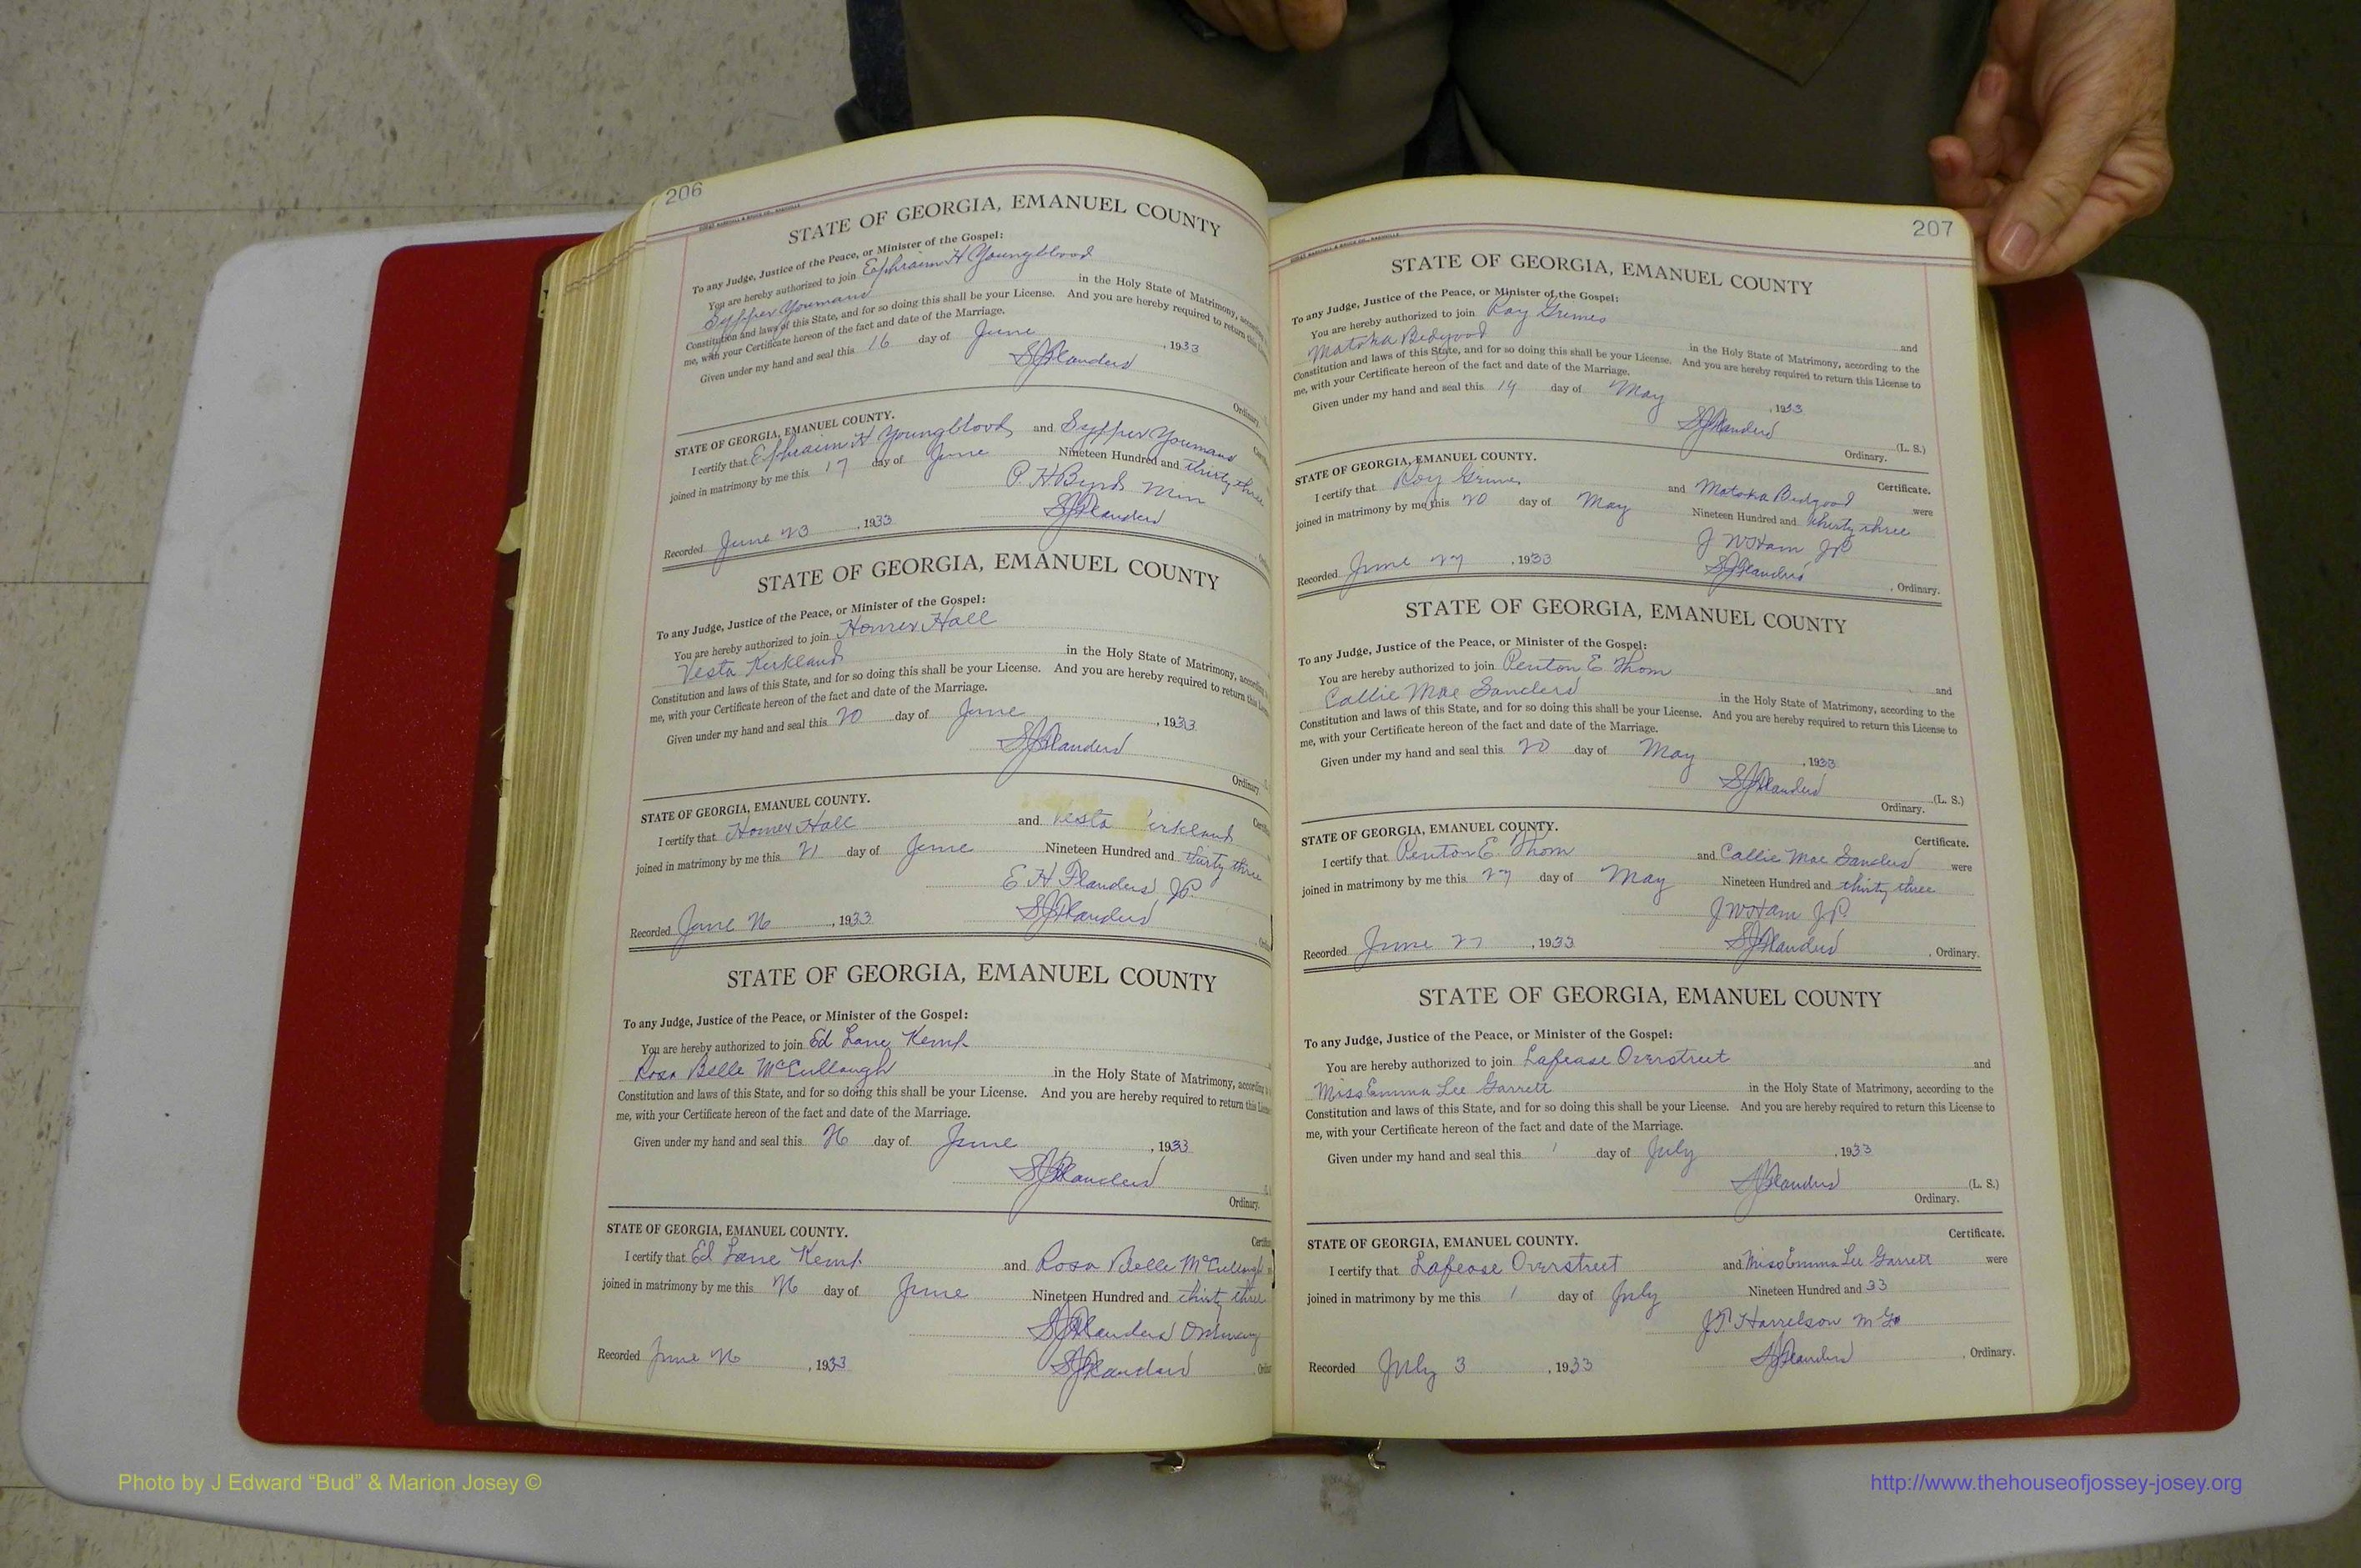 206
STATE OF GEORGIA, EMANUEL COUNTY
To any Judge, Justice of the Peace, or Minister of the Gospel:
You are hereby authorized to join Ephraim H Youngblood
Sypper Youmans in the Holy State of Matrimony,
Constitution and laws of this State, and for so doing this shall be your License. And you are hereby required to return this
me, with your Certificate hereon of the fact and date of the Marriage.
Given under my hand and seal this 16 day of June , 1933
SJFlanders
Ordinary.
STATE OF GEORGIA, EMANUEL COUNTY.
I certify that Ephraim H Youngblood and Sypper Youmans
joined in matrimony by me this 17 day of June Nineteen Hundred and thirty three
P. H. Byrd Min
Recorded June 23 , 1933 SJFlanders
STATE OF GEORGIA, EMANUEL COUNTY
To any Judge, Justice of the Peace, or Minister of the Gospel:
You are hereby authorized to join Homer Hall
Vesta Kirkland in the Holy State of Matrimony,
Constitution and laws of this State, and for so doing this shall be your License. And you are hereby required to return this
me, with your Certificate hereon of the fact and date of the Marriage.
Given under my hand and seal this 20 day of June , 1933
SJFlanders
Ordinary.
STATE OF GEORGIA, EMANUEL COUNTY.
I certify that Homer Hall and Vesta Kirkland
joined in matrimony by me this 21 day of June Nineteen Hundred and thirty three
E H Flanders J.P.
Recorded June 26 , 1933 SJFlanders
STATE OF GEORGIA, EMANUEL COUNTY
To any Judge, Justice of the Peace, or Minister of the Gospel:
You are hereby authorized to join Ed Lane Kemp
Rosa Belle McCullough in the Holy State of Matrimony, according
Constitution and laws of this State, and for so doing this shall be your License. And you are hereby required to return this
me, with your Certificate hereon of the fact and date of the Marriage.
Given under my hand and seal this 26 day of June , 1933
SJFlanders
Ordinary.
STATE OF GEORGIA, EMANUEL COUNTY.
I certify that Ed Lane Kemp and Rosa Belle McCullough
joined in matrimony by me this 26 day of June Nineteen Hundred and thirty three
SJFlanders Ordinary
Recorded June 26 , 1933 SJFlanders
207
STATE OF GEORGIA, EMANUEL COUNTY
To any Judge, Justice of the Peace, or Minister of the Gospel:
You are hereby authorized to join Roy Grimes and
Matoka Bedgood in the Holy State of Matrimony, according to the
Constitution and laws of this State, and for so doing this shall be your License. And you are hereby required to return this License to
me, with your Certificate hereon of the fact and date of the Marriage.
Given under my hand and seal this 19 day of May , 1933
SJFlanders (L. S.)
Ordinary.
STATE OF GEORGIA, EMANUEL COUNTY. Certificate.
I certify that Roy Grimes and Matoka Bedgood were
joined in matrimony by me this 20 day of May Nineteen Hundred and thirty three
J W Ham JP
Recorded June 27 , 1933 SJFlanders , Ordinary.
STATE OF GEORGIA, EMANUEL COUNTY
To any Judge, Justice of the Peace, or Minister of the Gospel:
You are hereby authorized to join Penton E Thom and
Callie Mae Sanders in the Holy State of Matrimony, according to the
Constitution and laws of this State, and for so doing this shall be your License. And you are hereby required to return this License to
me, with your Certificate hereon of the fact and date of the Marriage.
Given under my hand and seal this 20 day of May , 1933
SJFlanders (L. S.)
Ordinary.
STATE OF GEORGIA, EMANUEL COUNTY. Certificate.
I certify that Penton E. Thom and Callie Mae Sanders were
joined in matrimony by me this 27 day of May Nineteen Hundred and thirty three
J W Ham J.P.
Recorded June 27 , 1933 SJFlanders , Ordinary.
STATE OF GEORGIA, EMANUEL COUNTY
To any Judge, Justice of the Peace, or Minister of the Gospel:
You are hereby authorized to join Lafease Overstreet and
Miss Emma Lee Garrett in the Holy State of Matrimony, according to the
Constitution and laws of this State, and for so doing this shall be your License. And you are hereby required to return this License to
me, with your Certificate hereon of the fact and date of the Marriage.
Given under my hand and seal this 1 day of July , 1933
SJFlanders (L. S.)
Ordinary.
STATE OF GEORGIA, EMANUEL COUNTY. Certificate.
I certify that Lafease Overstreet and Miss Emma Lee Garrett were
joined in matrimony by me this 1 day of July Nineteen Hundred and 33
J.P. Harrelson M G
Recorded July 3 , 1933 SJFlanders , Ordinary.
Photo by J Edward “Bud” & Marion Josey ©
http://www.thehouseofjossey-josey.org